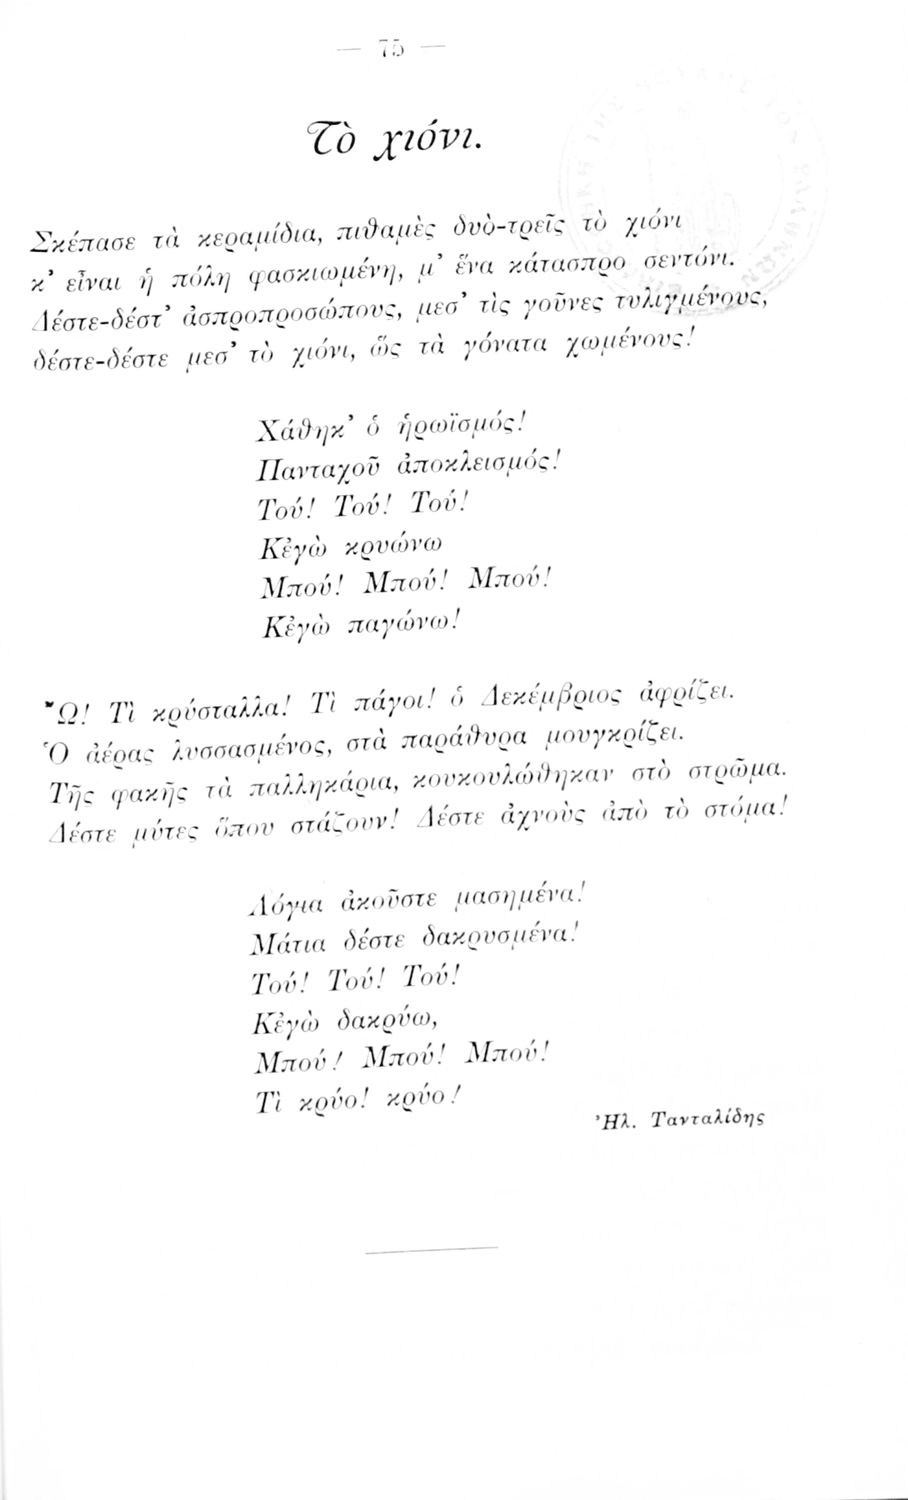 — 75 —
Τὸ χιόνι.
Σκέπασε τὰ κεραμίδια, πιθαμὲς δυὸ-τρεῖς τὸ χιόνι
κ' εἶναι ἡ πόλη φασκιωμένη, μ' ἕνα κάτασπρο σεντόνι.
Δέστε-δέστ' ἀσπροπροσώπους, μεσ' τὶς γοῦνες τυλιγμένους,
δέστε-δέστε μεσ' τὸ χιόνι, ὣς τὰ γόνατα χωμένους!
Χάθηκ' ὁ ἡρωϊσμός!
Πανταχοῦ ἀποκλεισμός!
Τού! Τού! Τού!
Κἐγὼ κρυώνω
Μπού! Μπού! Μπού!
Κἐγὼ παγώνω!
Ὤ! Τὶ κρύσταλλα! Τὶ πάγοι! ὁ Δεκέμβριος ἀφρίζει.
Ὁ ἀέρας λυσσασμένος, στὰ παράθυρα μουγκρίζει.
Τῆς φακῆς τὰ παλληκάρια, κουκουλώθηκαν στὸ στρῶμα.
Δέστε μύτες ὅπου στάζουν! Δέστε ἀχνοὺς ἀπὸ τὸ στόμα!
Λόγια ἀκοῦστε μασημένα!
Μάτια δέστε δακρυσμένα!
Τού! Τού! Τού!
Κἐγὼ δακρύω,
Μπού! Μπού! Μπού!
Τὶ κρύο! κρύο!
Ἠλ. Τανταλίδης